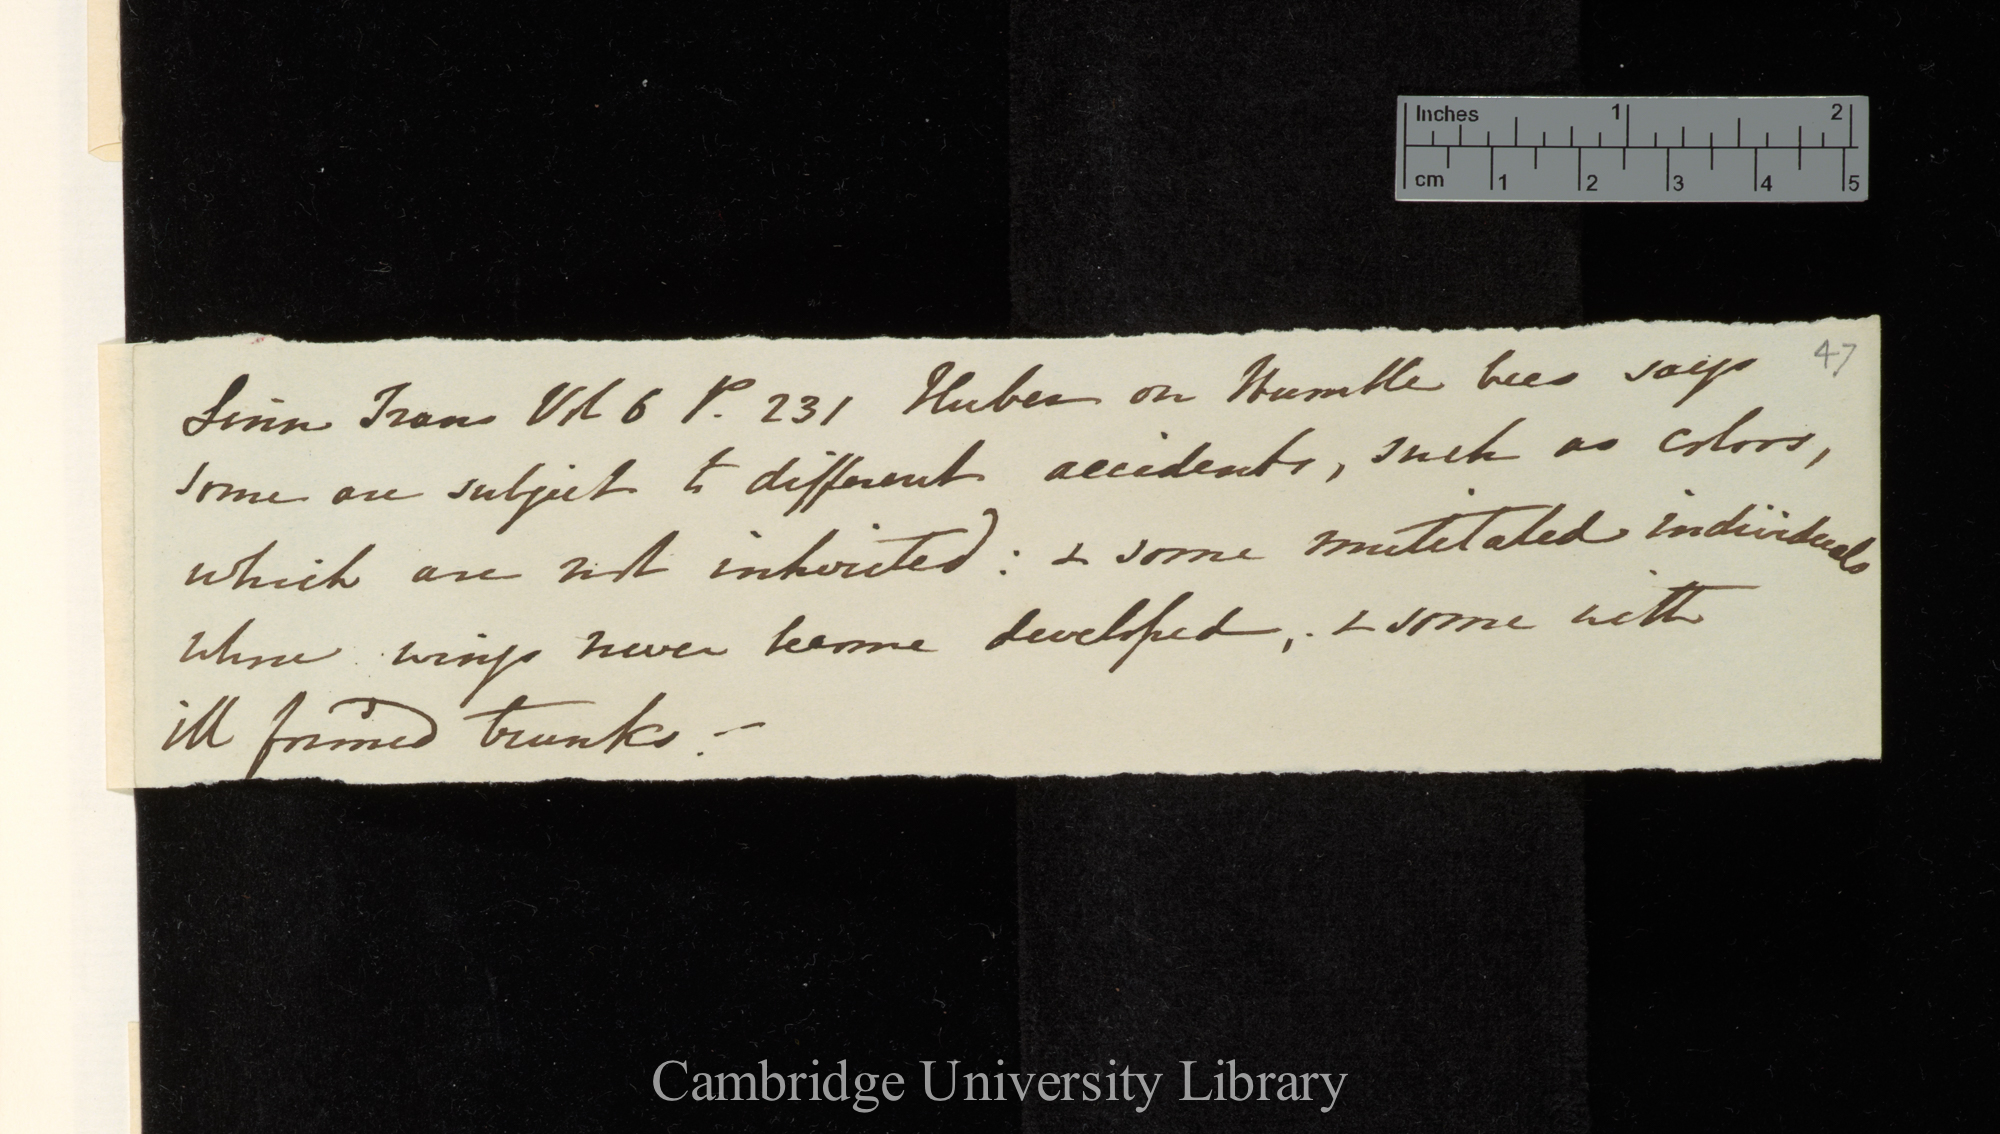 Inches 1 2
cm 1 2 3 4 5
47
Linn Trans Vol 6 P. 231 Huber on Humble bees says
some are subject to different accidents, such as colors,
which are not inherited: & some mutilated individuals
whose wings never become developed, & some with
ill formed trunks. —
Cambridge University Library